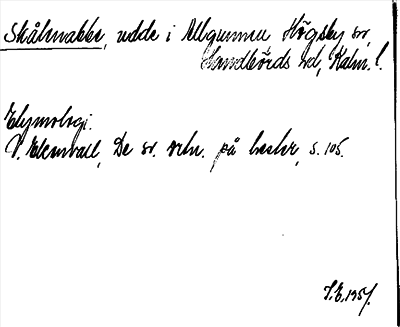 Skålsnabbe, udde i Allgunnen Högsby sn,
Handbörds hd, Kalm. l.
Etymologi.
V. Ekenvall, De sv. ortn. på hester, s. 105.
S.E. 1957.